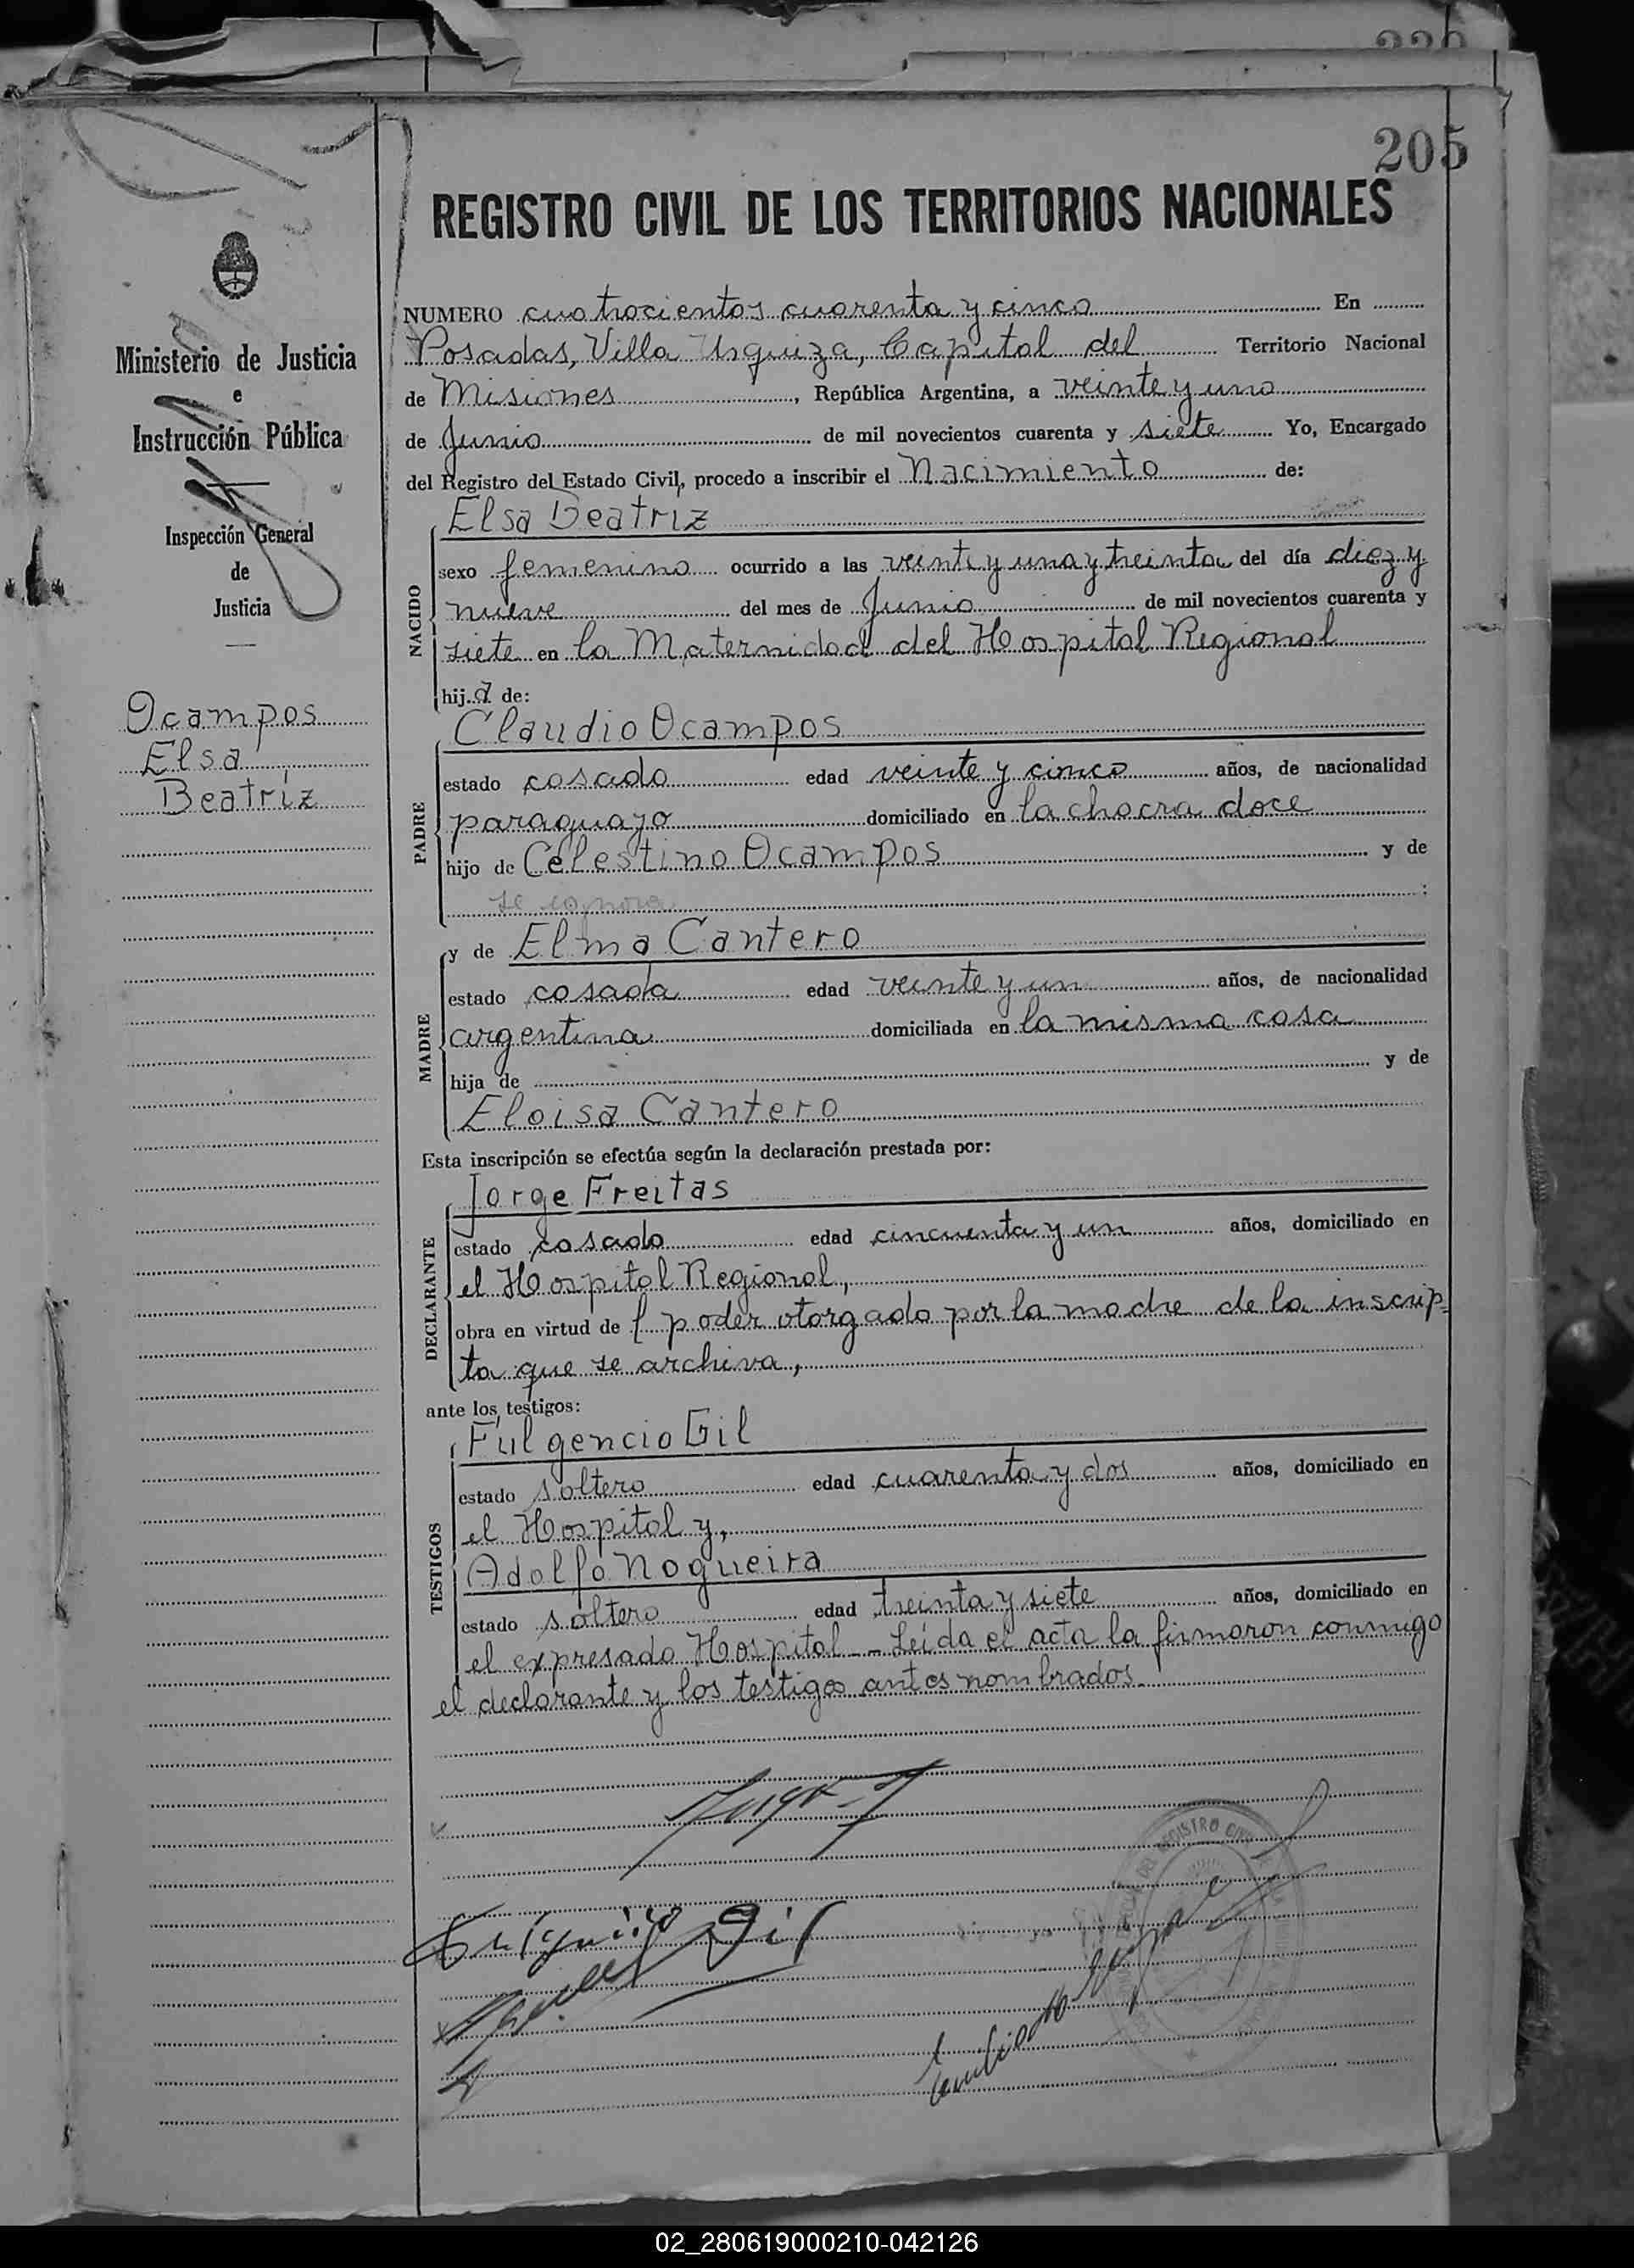 205
REGISTRO CIVIL DE LOS TERRITORIOS NACIONALES
Ministerio de Justicia
e
Instrucción Pública
Inspección General
de
Justicia
Ocampos
Elsa
Beatríz
NUMERO cuatrocientos cuarenta y cinco En
Posadas, Villa Urquiza, Capital del Territorio Nacional
de Misiones, República Argentina, a veinte y uno
de Junio de mil novecientos cuarenta y siete Yo, Encargado
del Registro del Estado Civil, procedo a inscribir el Nacimiento de:
NACIDO
Elsa Beatriz
sexo femenino ocurrido a las veinte y una y treinta del día diez y
nueve del mes de Junio de mil novecientos cuarenta y
siete en la Maternidad del Hospital Regional
hija de:
PADRE
Claudio Ocampos
estado casado edad veinte y cinco años, de nacionalidad
paraguayo domiciliado en la chacra doce
hijo de Celestino Ocampos y de
se ignora;
MADRE
y de Elma Cantero
estado casada edad veinte y un años, de nacionalidad
argentina domiciliada en la misma casa
hija de y de
Eloisa Cantero
Esta inscripción se efectúa según la declaración prestada por:
DECLARANTE
Jorge Freitas
estado casado edad cincuenta y un años, domiciliado en
el Hospital Regional,
obra en virtud de l poder otorgado por la madre de la inscrip=
ta que se archiva,
ante los testigos:
TESTIGOS
Fulgencio Gil
estado soltero edad cuarenta y dos años, domiciliado en
el Hospital y,
Adolfo Nogueira
estado soltero edad treinta y siete años, domiciliado en
el expresado Hospital _ Leída el acta la firmaron conmigo
el declarante y los testigos antes nombrados.
Gil
REGISTRO CIVIL
02_280619000210-042126